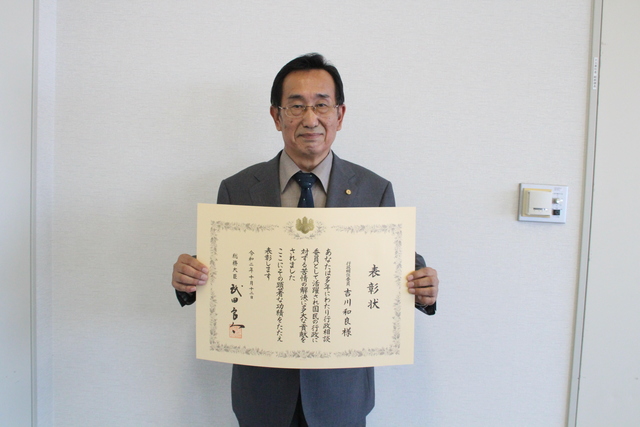 表彰状
行政相談委員 吉川和良様
あなたは多年にわたり行政相談
委員として活躍され国民の行政に
対する苦情の解決に多大な貢献を
されました
ここにその顕著な功績をたたえ
表彰します
令和二年十月十六日
総務大臣 武田良太